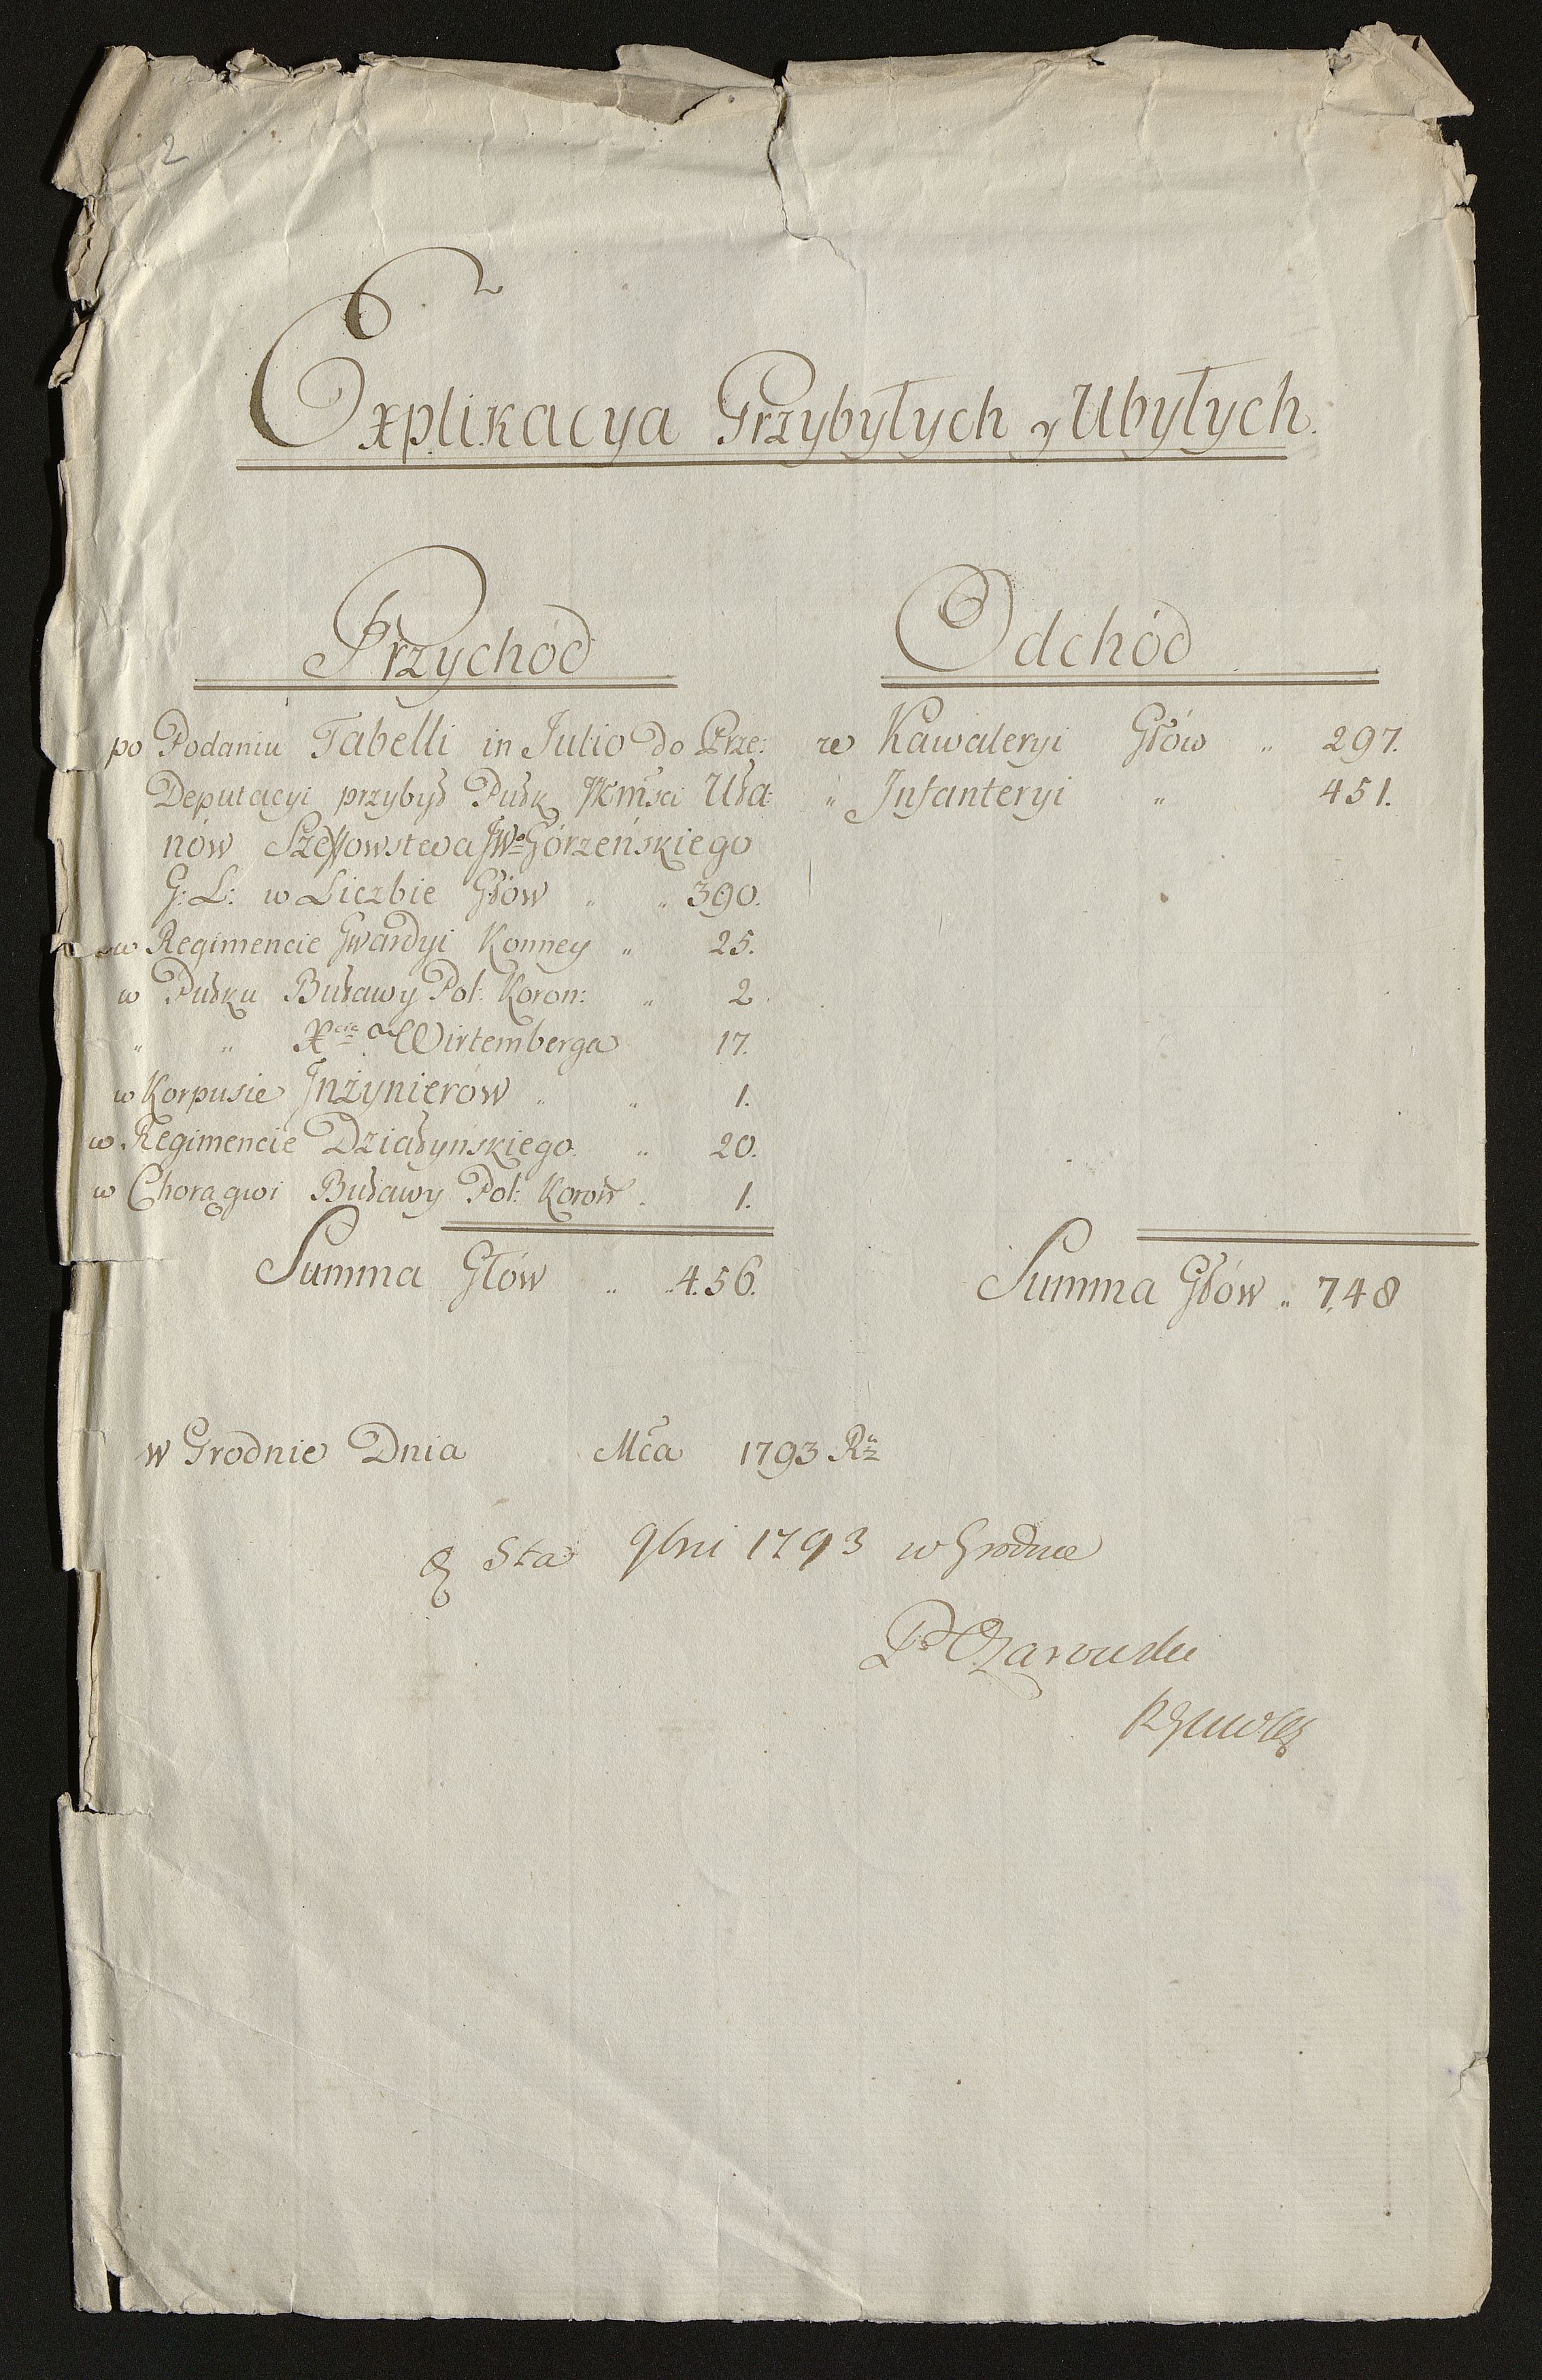 2
Explikacya Przybyłych y Ubyłych.
Przychód
po Podaniu Tabelli in Julio do Prze:
Deputacyi przybył Pułk JKmsci Uła:
nów Szeffowstwa JWo Górzeńskiego
G: L: w Liczbie Głów " " 390.
w Regimencie Gwardyi Konney " 25.
w Pułku Buławy Pol: Koron: " 2.
" " Xcia Wirtemberga 17.
w Korpusie Inżynierów " " 1.
w Regimencie Działyńskiego. " 20.
w Chorągwi Buławy Pol: Koron 1.
Summa Głów " " 456.
Odchód
ze Kawaleryi Głów " 297.
" Infanteryi " 451.
Summa Głów " 748
w Grodnie Dnia Mca 1793 R.
Sta 9bris 1793 w Grodnie
P Ożarowski